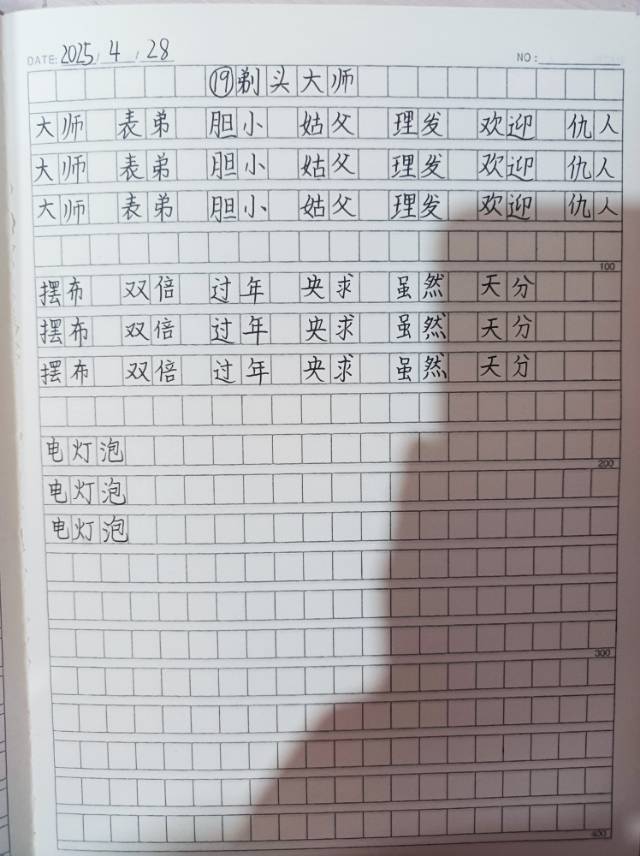 DATE: 2025 / 4 / 28 NO:
⑲剃头大师
大师 表弟 胆小 姑父 理发 欢迎 仇人
大师 表弟 胆小 姑父 理发 欢迎 仇人
大师 表弟 胆小 姑父 理发 欢迎 仇人
100
摆布 双倍 过年 央求 虽然 天分
摆布 双倍 过年 央求 虽然 天分
摆布 双倍 过年 央求 虽然 天分
电灯泡
200
电灯泡
电灯泡
300
400